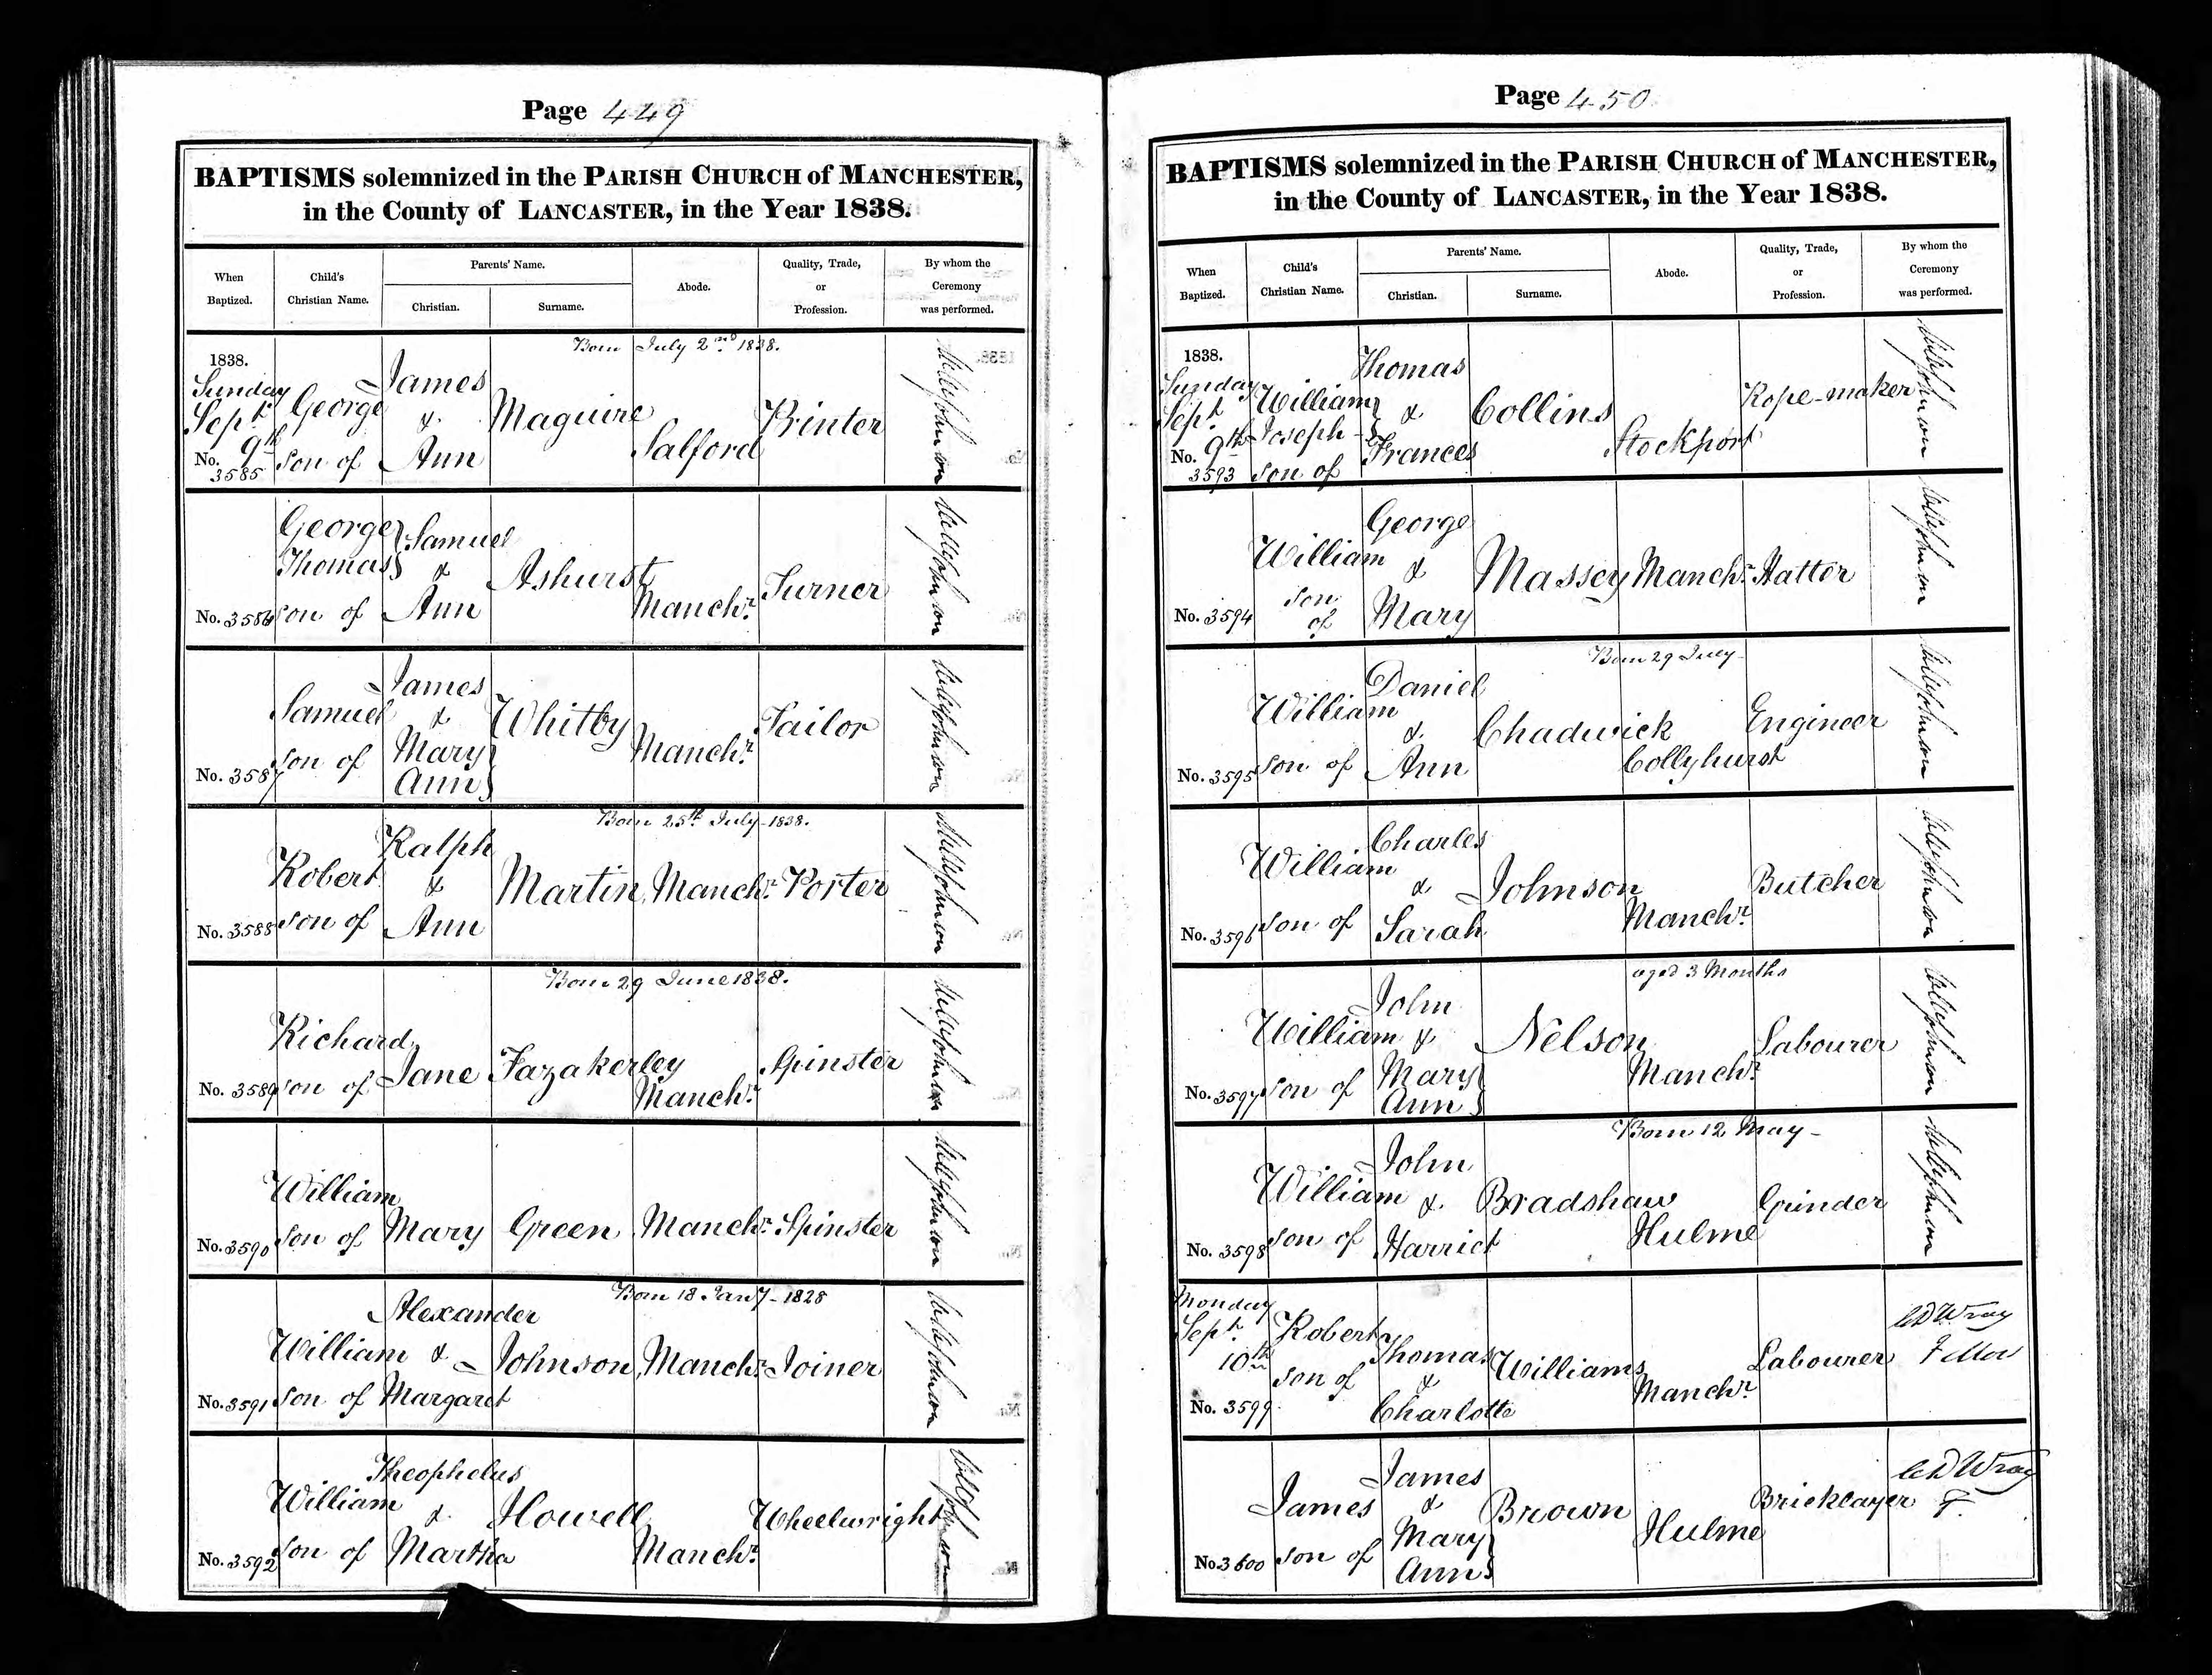 Page 449
BAPTISMS solemnized in the PARISH CHURCH of MANCHESTER,
in the County of LANCASTER, in the Year 1838.
When Baptized. Child's Christian Name. Parents' Name. Christian. Surname. Abode. Quality, Trade, or Profession. By whom the Ceremony was performed.
Born July 2nd 1838.
1838. Sunday Sept. 9th No. 3585 George son of James & Ann Maguire Salford Printer
No. 3586 George Thomas son of Samuel & Ann Ashurst Manchr. Turner
No. 3587 Samuel son of James & Mary Ann Whitby Manchr. Tailor
Born 25th July 1838.
No. 3588 Robert son of Ralph & Ann Martin Manchr. Porter
Born 29 June 1838.
No. 3589 Richard son of Jane Fazakerley Manchr. Spinster
No. 3590 William son of Mary Green Manchr. Spinster
Born 18 Jany - 1828
No. 3591 William son of Alexander & Margaret Johnson Manchr. Joiner
No. 3592 William son of Theophelus & Martha Howell Manchr. Wheelwright
Page 450
BAPTISMS solemnized in the PARISH CHURCH of MANCHESTER,
in the County of LANCASTER, in the Year 1838.
When Baptized. Child's Christian Name. Parents' Name. Christian. Surname. Abode. Quality, Trade, or Profession. By whom the Ceremony was performed.
1838. Sunday Sept. 9th No. 3593 William Joseph son of Thomas & Frances Collins Stockport Rope-maker
No. 3594 William son of George & Mary Massey Manchr. Hatter
Born 29 July
No. 3595 William son of Daniel & Ann Chadwick Collyhurst Engineer
No. 3596 William son of Charles & Sarah Johnson Manchr. Butcher
aged 3 Months
No. 3597 William son of John & Mary Ann Nelson Manchr. Labourer
Born 12 May
No. 3598 William son of John & Harriet Bradshaw Hulme Grinder
Monday Sept. 10th No. 3599 Robert son of Thomas & Charlotte Williams Manchr. Labourer CD Wray Fellow
No. 3600 James son of James & Mary Ann Brown Hulme Bricklayer CD Wray F.